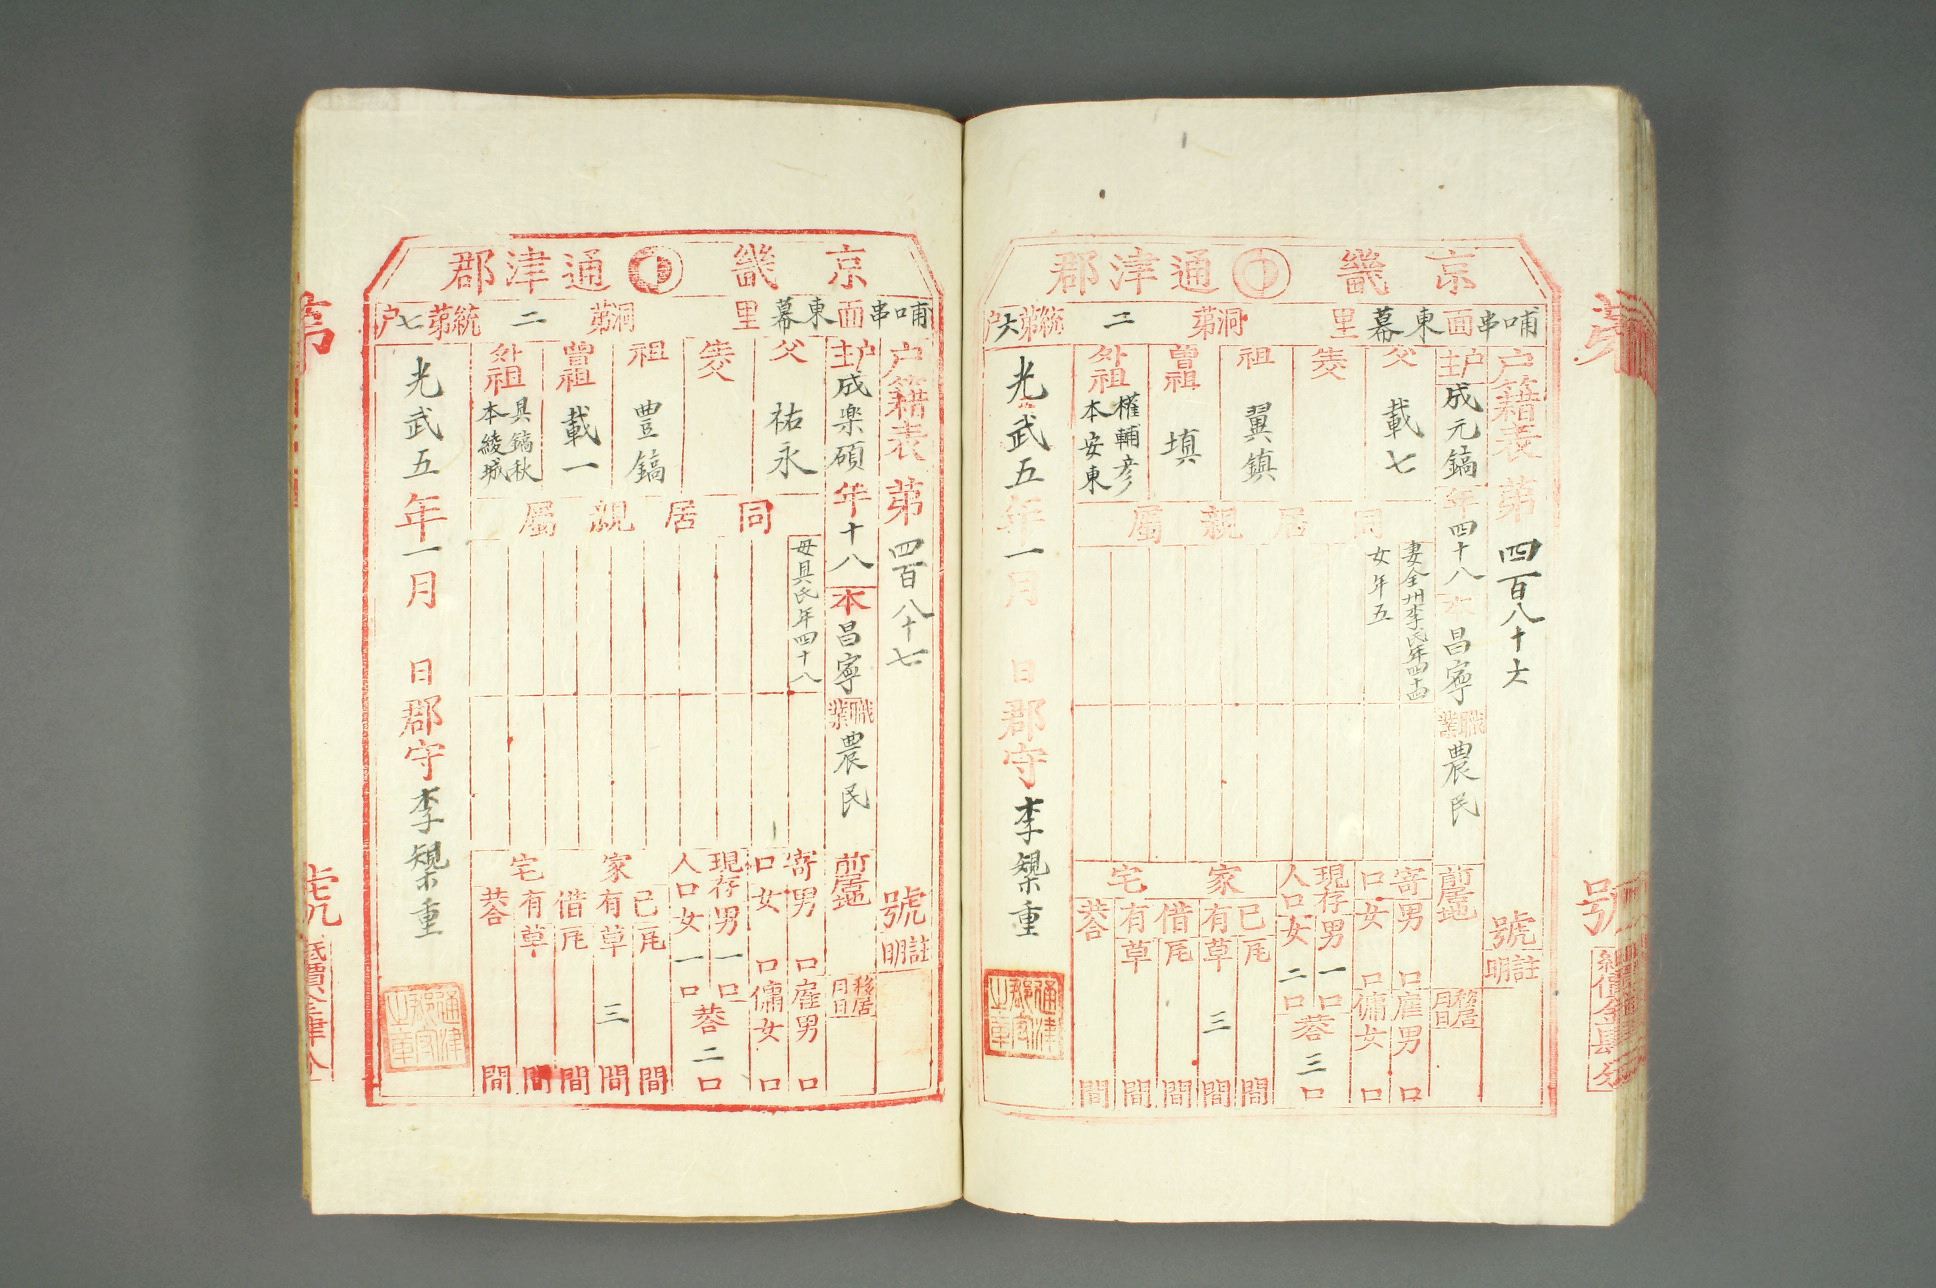 京畿通津郡
哺串面東幕里洞第二統第六户
户籍表第四百八十六號
註明
户主成元鎬年四十八本昌寧職業農民前居地
移居月日
父載七
養父
祖翼鎮
曾祖填
外祖權輔彦本安東
同居親屬
妻全州李氏年四十四
女年五
寄口男口雇男口
女口傭女口
現存人口男一口女二口
共合三口
家宅
己有瓦間
草三間
借有瓦間
草間
共合間
光武五年一月日郡守李㮣重
通津郡守之章
第
號
紙價金肆分
京畿通津郡
哺串面東幕里洞第二統第七户
户籍表第四百八十七號
註明
户主成樂碩年十八本昌寧職業農民前居地
移居月日
父祐永
養父
祖豊鎬
曾祖載一
外祖具鎬秋本綾城
同居親屬
母具氏年四十八
寄口男口雇男口
女口傭女口
現存人口男一口女一口
共合二口
家宅
己有瓦間
草三間
借有瓦間
草間
共合間
光武五年一月日郡守李㮣重
通津郡守之章
第
號